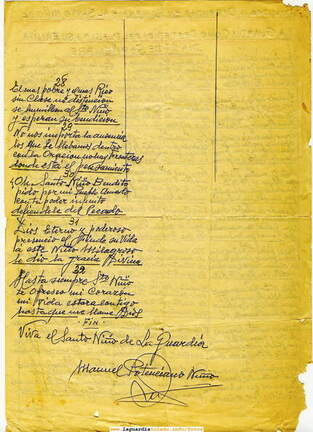 28
El mas pobre y el mas Rico
sin Clase ni distincion
se humillan al Sto Niño
y esperan su bendicion
29
No nos importa la ausencia
los que te llebamos dentro
con la Oracion
donde esta el pensamiento
30
Oh Santo Niño Bendito
pido por mi Pueblo Amado
con tu poder infinito
defiendele del Pecado
31
Dios Eterno y poderoso
presencio el Mundo su Vida
la este Niño Milagroso
le dio la gracia Divina
32
Hasta siempre Sto Niño
Te ofresco mi Corazon
mi Vida estara contigo
hasta que me llame Dios
FIN
Viva el Santo Niño de La Guardia
Manuel Potenciano Nuño
www.laguardiatoledo.info/fotos